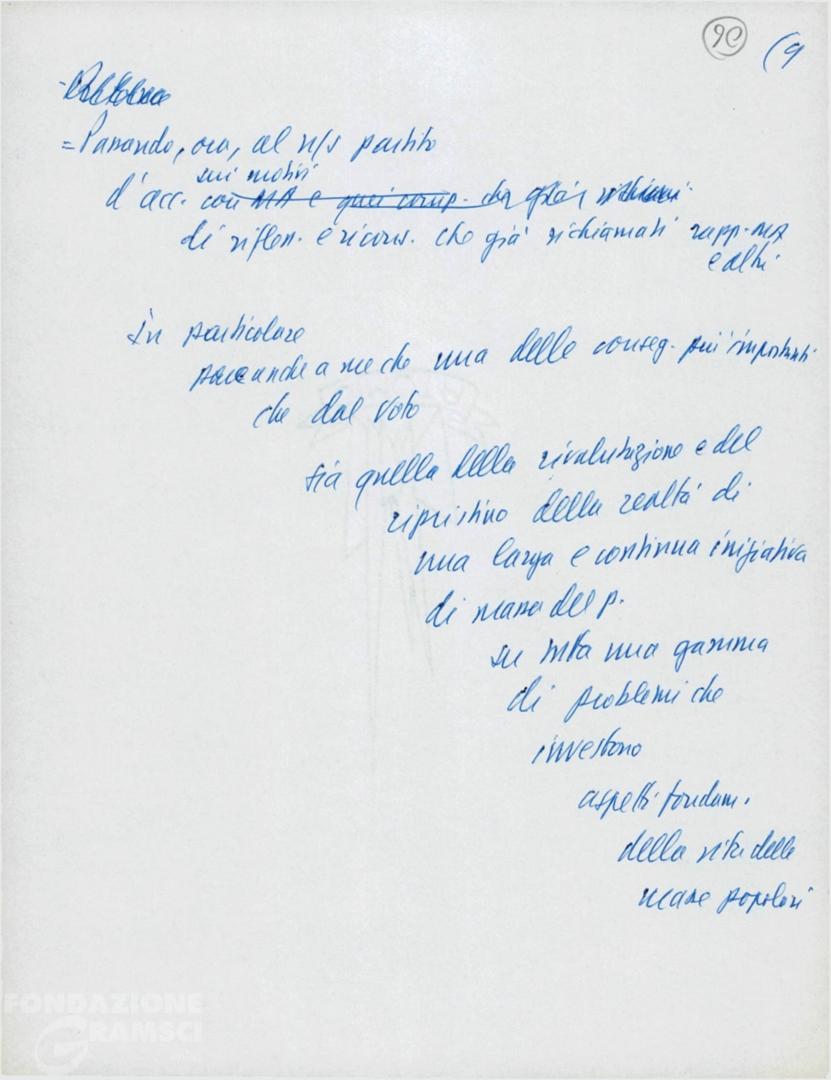 90 (9
= Passando, ora, al n/s partito
sui motivi
d'acc. con MA e quei comp. che già richiami
di rifless. e ricons. che già richiamati rapp. MA
e altri
in particolare
pare anche a me che una delle conseg. più importanti
che dal voto
sia quella della rivalutazione e del
ripristino della realtà di
una larga e continua iniziativa
di massa del p.
su tutta una gamma
di problemi che
investono
aspetti fondam.
della vita delle
masse popolari
FONDAZIONE
GRAMSCI